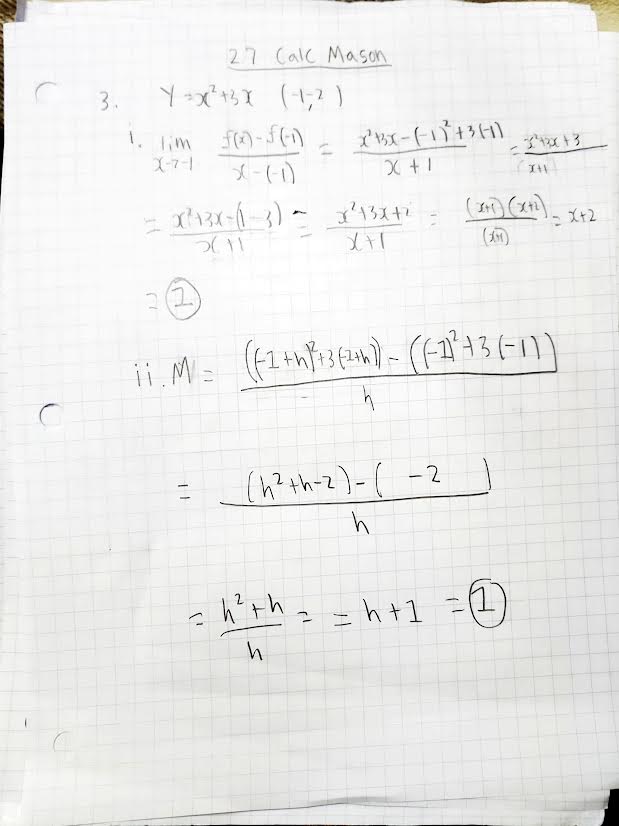 27 Calc Mason
3. Y=x²+3x (-1,-2)
i. lim x→-1 (f(x)-f(-1))/(x-(-1)) = (x²+3x-(-1)²+3(-1))/(x+1) = (x²+3x+3)/(x+1)
= (x²+3x-(1-3))/(x+1) = (x²+3x+2)/(x+1) = ((x+1)(x+2))/(x+1) = x+2
= 1
ii. M = (((-1+h)²+3(-1+h))-((-1)²+3(-1)))/h
= ((h²+h-2)-(-2))/h
= (h²+h)/h = = h+1 = 1